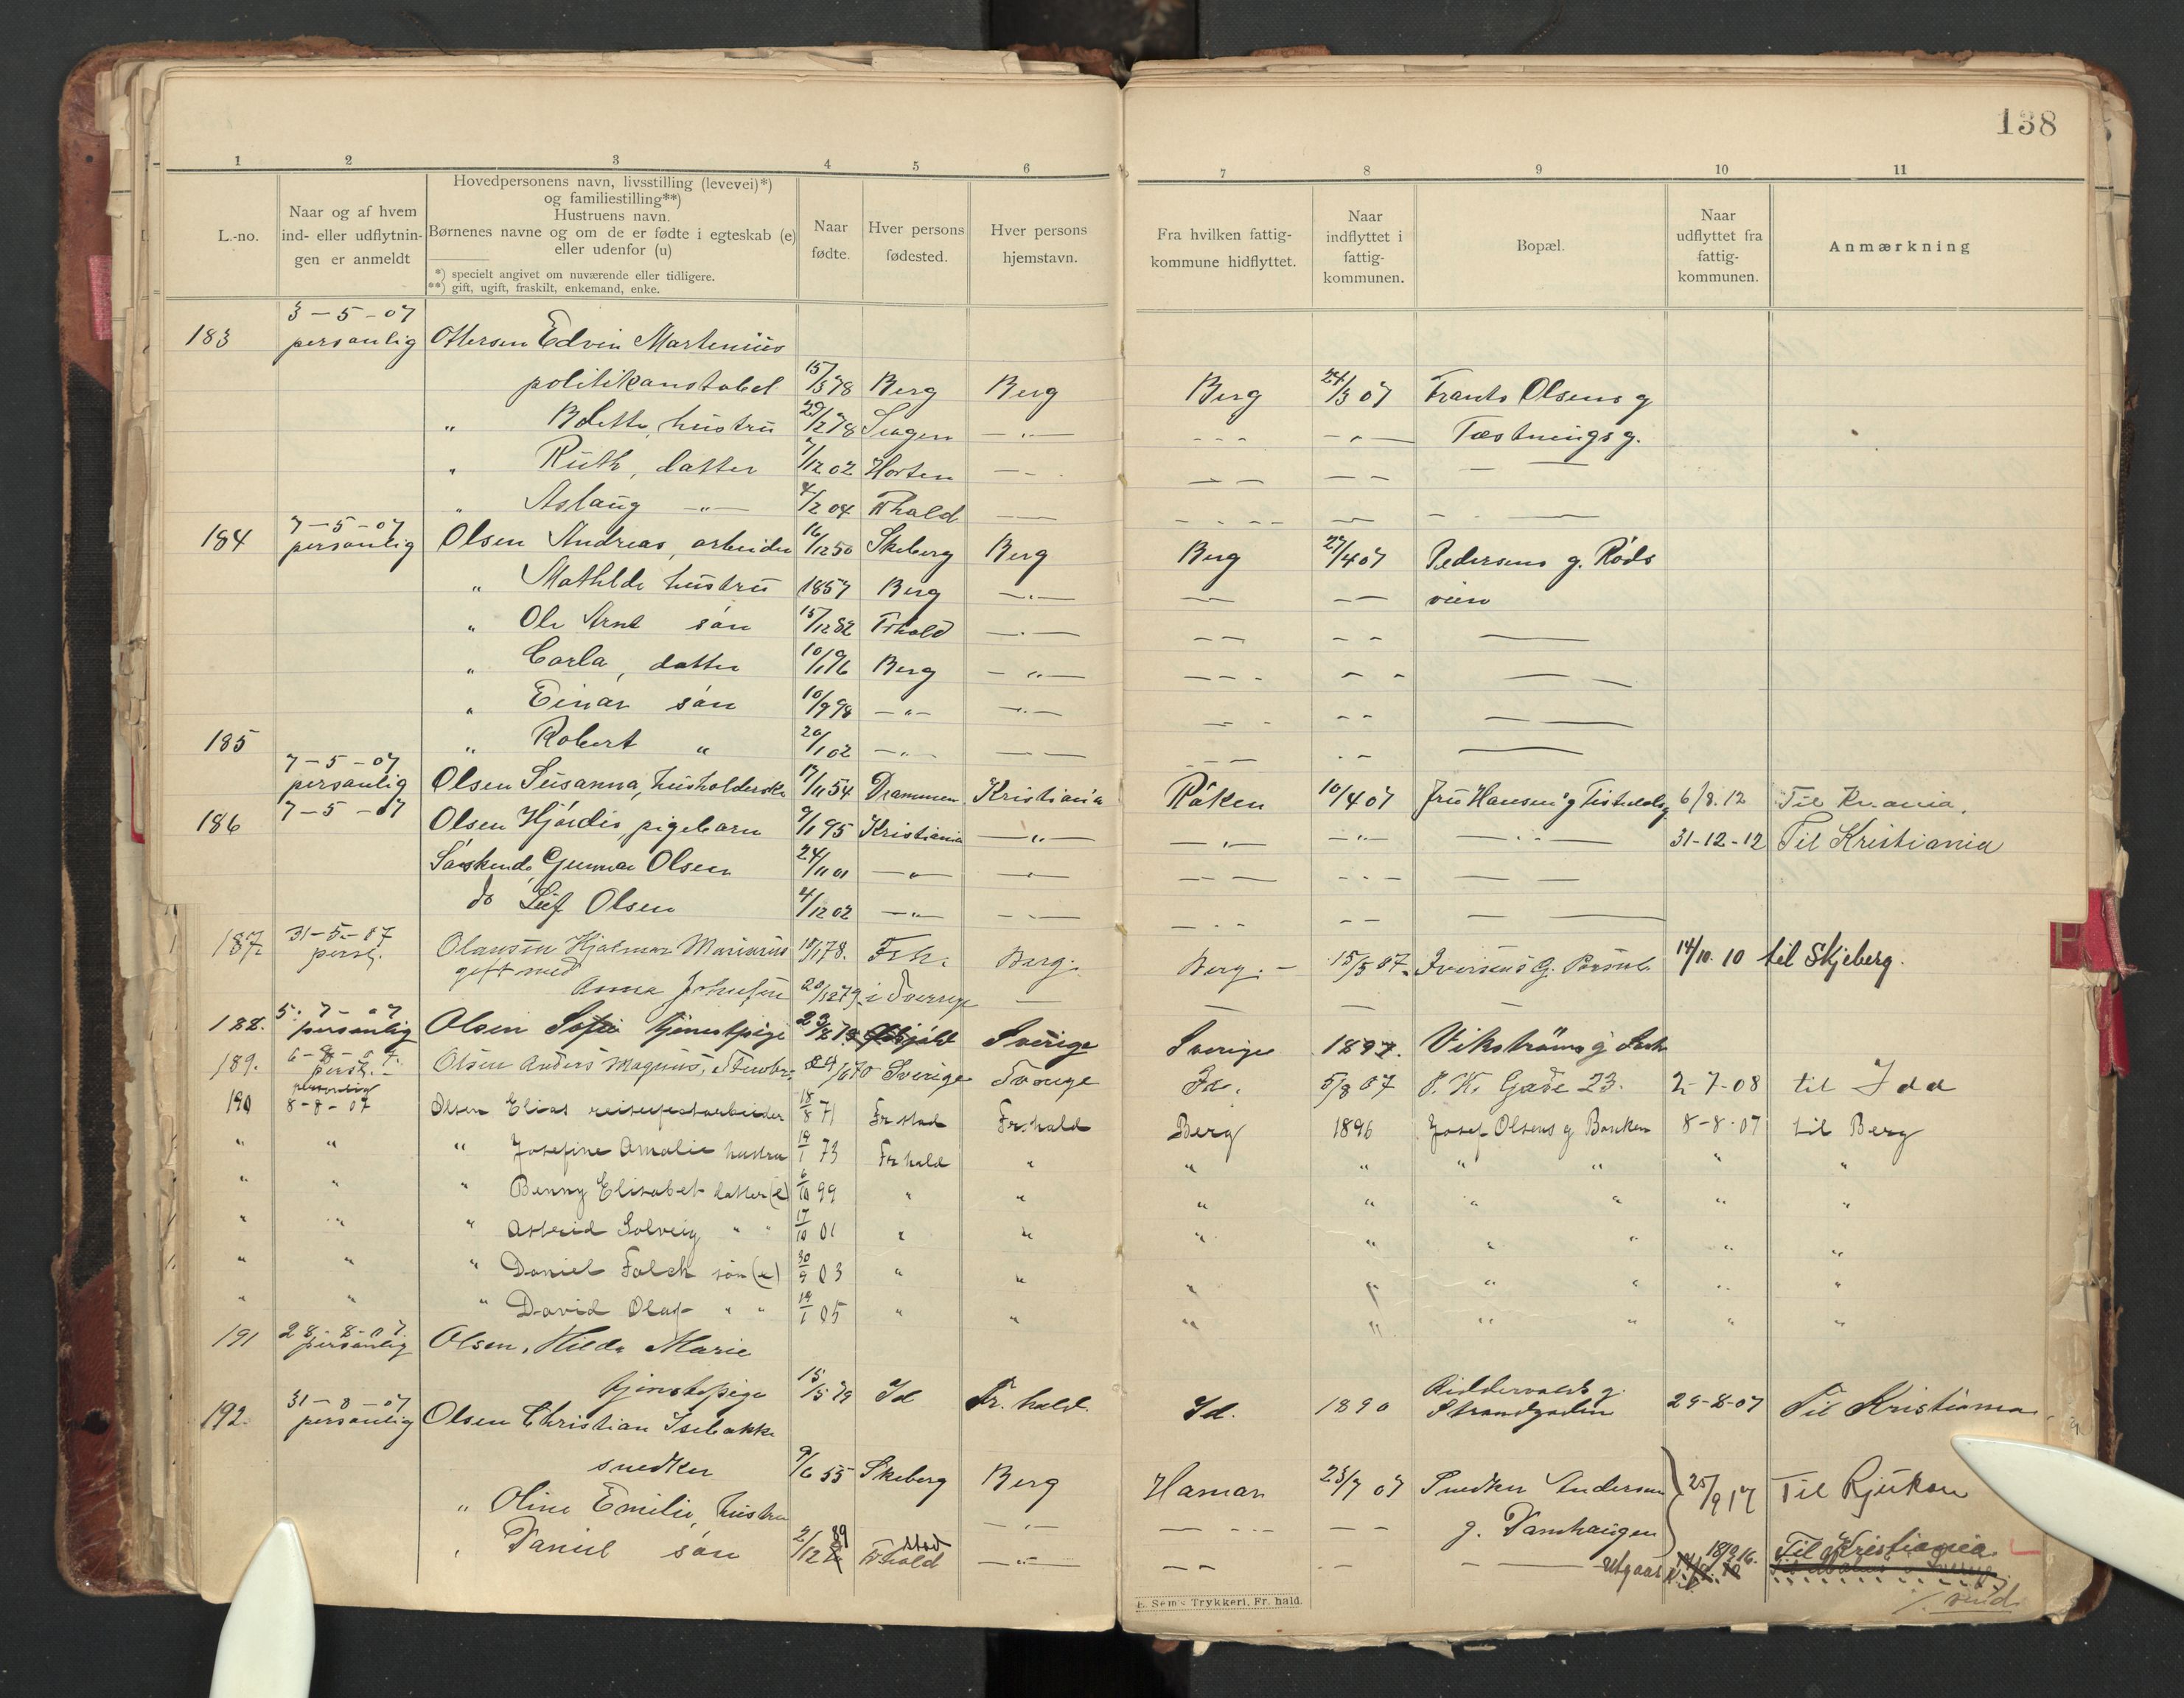 138
1 2 3 4 5 6 7 8 9 10 11
L.-no.
Naar og af hvem
ind- eller udflytnin-
gen er anmeldt
Hovedpersonens navn, livsstilling (levevei)*)
og familiestilling**)
Hustruens navn.
Børnenes navne og om de er fødte i egteskab (e)
eller udenfor (u)
*) specielt angivet om nuværende eller tidligere.
**) gift, ugift, fraskilt, enkemand, enke.
Naar
fødte.
Hver persons
fødested.
Hver persons
hjemstavn.
Fra hvilken fattig-
kommune hidflyttet.
Naar
indflyttet i
fattig-
kommunen.
Bopæl.
Naar
udflyttet fra
fattig-
kommunen.
Anmærkning
3-5-07
183 personlig Ottersen Edvin Martenius
politikonstabel 15/3 78 Berg Berg Berg 24/3 07 Frants Olsens g
" hustru 29/12 78 —"— - - - —"— Fæstningsg.
" Ruth, datter 7/12 02 Horten —"— — — — —
" Aslaug —"— 4/2 04 Frhald — —
7-5-07
184 personlig Olsen Andreas, arbeider 16/12 50 Skeberg Berg Berg 27/4 07 Pedersens g. Røds
" Mathilde hustru 1857 Berg —"— — — veien
" Ole Arne søn 15/12 82 Frhald —"— — —
" Carla, datter 10/1 96 Berg —"— - - -
" Einar søn 10/9 98 —"— —"— — —
185 " Robert " 20/1 02 —"— — —
7-5-07
personlig Olsen Susanna, husholderske 17/11 54 Drammen Kristiania Røken 10/4 07 Fru Hansens g 6/8.12 Til Kr.ania.
186 7-5-07 Olsen Hjørdis, pigebarn 9/1 95 Kristiania —"— —"— —"— —"— 31-12-12 Til Kristiania
Søskende Gunnar Olsen 24/11 01 —"— —"— — —
do Leif Olsen 4/12 02 —"— —"—
187 31-5-07
persl. Olausen Hjalmar Marinius 18/1 78. Frh. Berg. Berg. 15/5 07. Iversens G. 14/10.10 til Skjeberg.
gift med
Anna Johnsen 20/12 79 i Sverrige —
188. 5-7-07
personlig Olsen Sofie tjenestpige 23/8 Sverige Sverige 1897. Vikstrøms g
189. persl. Olsen Anders Magnus, 24/6 70 Sverige Sverige Fr. 5/8 07 P. K. Gade 23. 2-7-08 til Idd
190 personlig
8-8-07 Olsen Elias reisefestarbeider 18/8 71 Fr.stad Fr.hald Berg 1896 Josef Olsens g Banken 8-8-07 til Berg
" " " Josefine Amalie hustru 19/1 73 Frhald " " " " " " "
" " " Benny Elisabet datter (e) 6/10 99 " " " " " " " "
" " " Astrid Solveig " " 17/10 01 " " " " " " " "
" " " Daniel Falch søn (e) 30/9 03 " " " " " " " "
" " " David Olaf " " 19/1 05 " " " " " " " "
191 28-8-07
personlig Olsen, Hilda Marie
tjenestepige 15/5 79 Id Fr.hald. Id. 1890 Riddervolds g.
Strandgaden 29-8-07 Til Kristiania
192. 31-8-07
personlig Olsen Christian Isebakke
snedker 9/6 55 Skeberg Berg Hamar 23/7 07 Snedker Andersen 25/9 17 Til Rjukan
" Oline Emilie, hustru —"— — - - — — g. Damhaugen
" Daniel søn 2/12 89 Frhald stad —"— — — - - — Utgaar 18/2 16. Til Kristiania
vend
E. Sem's Trykkeri, Fr. hald.